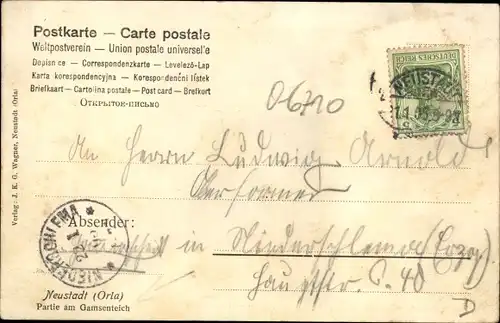 Postkarte — Carte postale
Weltpostverein — Union postale universelle
Dopisnice — Correspondenzkarte — Levelező-Lap
Karta korespondencyjna — Korespondenční lístek
Briefkaart — Cartolina postale — Post card — Brefkort
Открытое письмо
06710
DEUTSCHES REICH
NEUSTADT
An Herrn Ludwig Arnold
Oberformer
Absender:
in Niederschlema (Erzg.)
Hauptstr. 40
D
NIEDERSCHLEMA
Neustadt (Orla)
Partie am Gamsenteich
Verlag: J. K. G. Wagner, Neustadt (Orla)